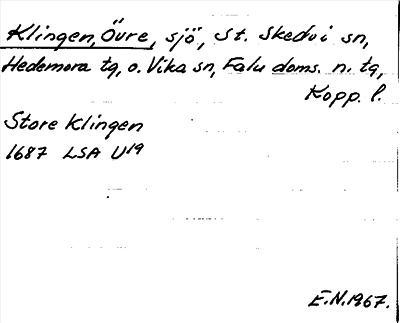 Klingen, Övre, sjö, St. Skedvi sn,
Hedemora tg, o. Vika sn, Falu doms. n. tg,
Kopp. l.
Store Klingen
1687 LSA U19
E.N. 1967.